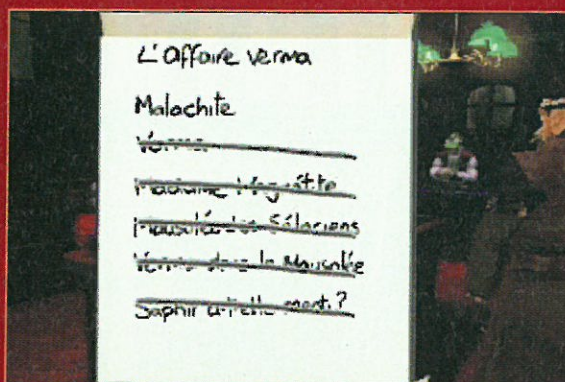 L'affaire Verma
Malachite
Verma
Madame Magnétite
Mausolée des Sélaciens
Verma dans le Mausolée
Saphir a-t-elle ?